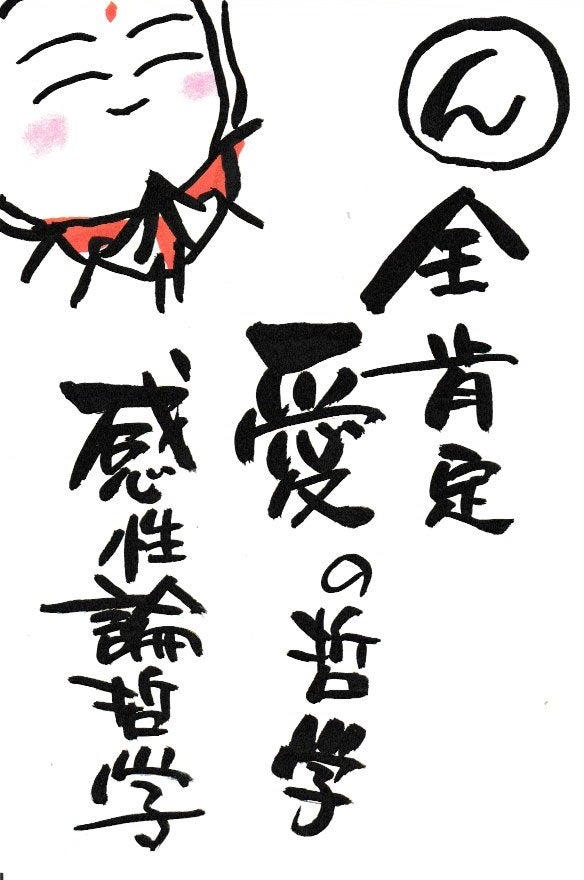 ん
全肯定
愛の哲学
感性論哲学